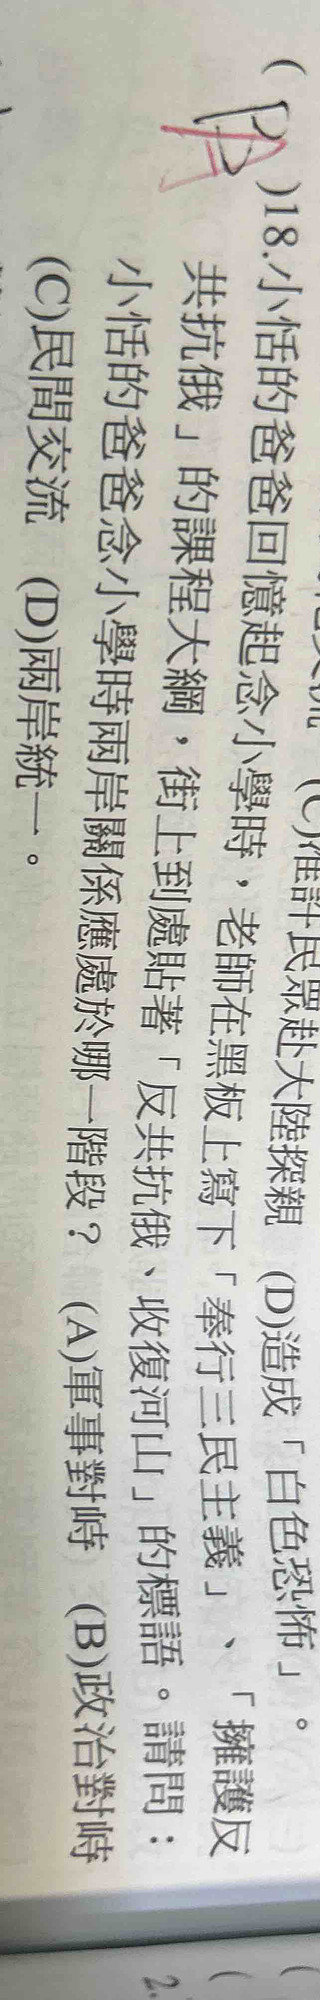 (C)准許民眾赴大陸探親 (D)造成「白色恐怖」。
( D )18.小恬的爸爸回憶起念小學時，老師在黑板上寫下「奉行三民主義」、「擁護反
A
共抗俄」的課程大綱，街上到處貼著「反共抗俄、收復河山」的標語。請問：
小恬的爸爸念小學時兩岸關係應處於哪一階段？ (A)軍事對峙 (B)政治對峙
(C)民間交流 (D)兩岸統一。
2.